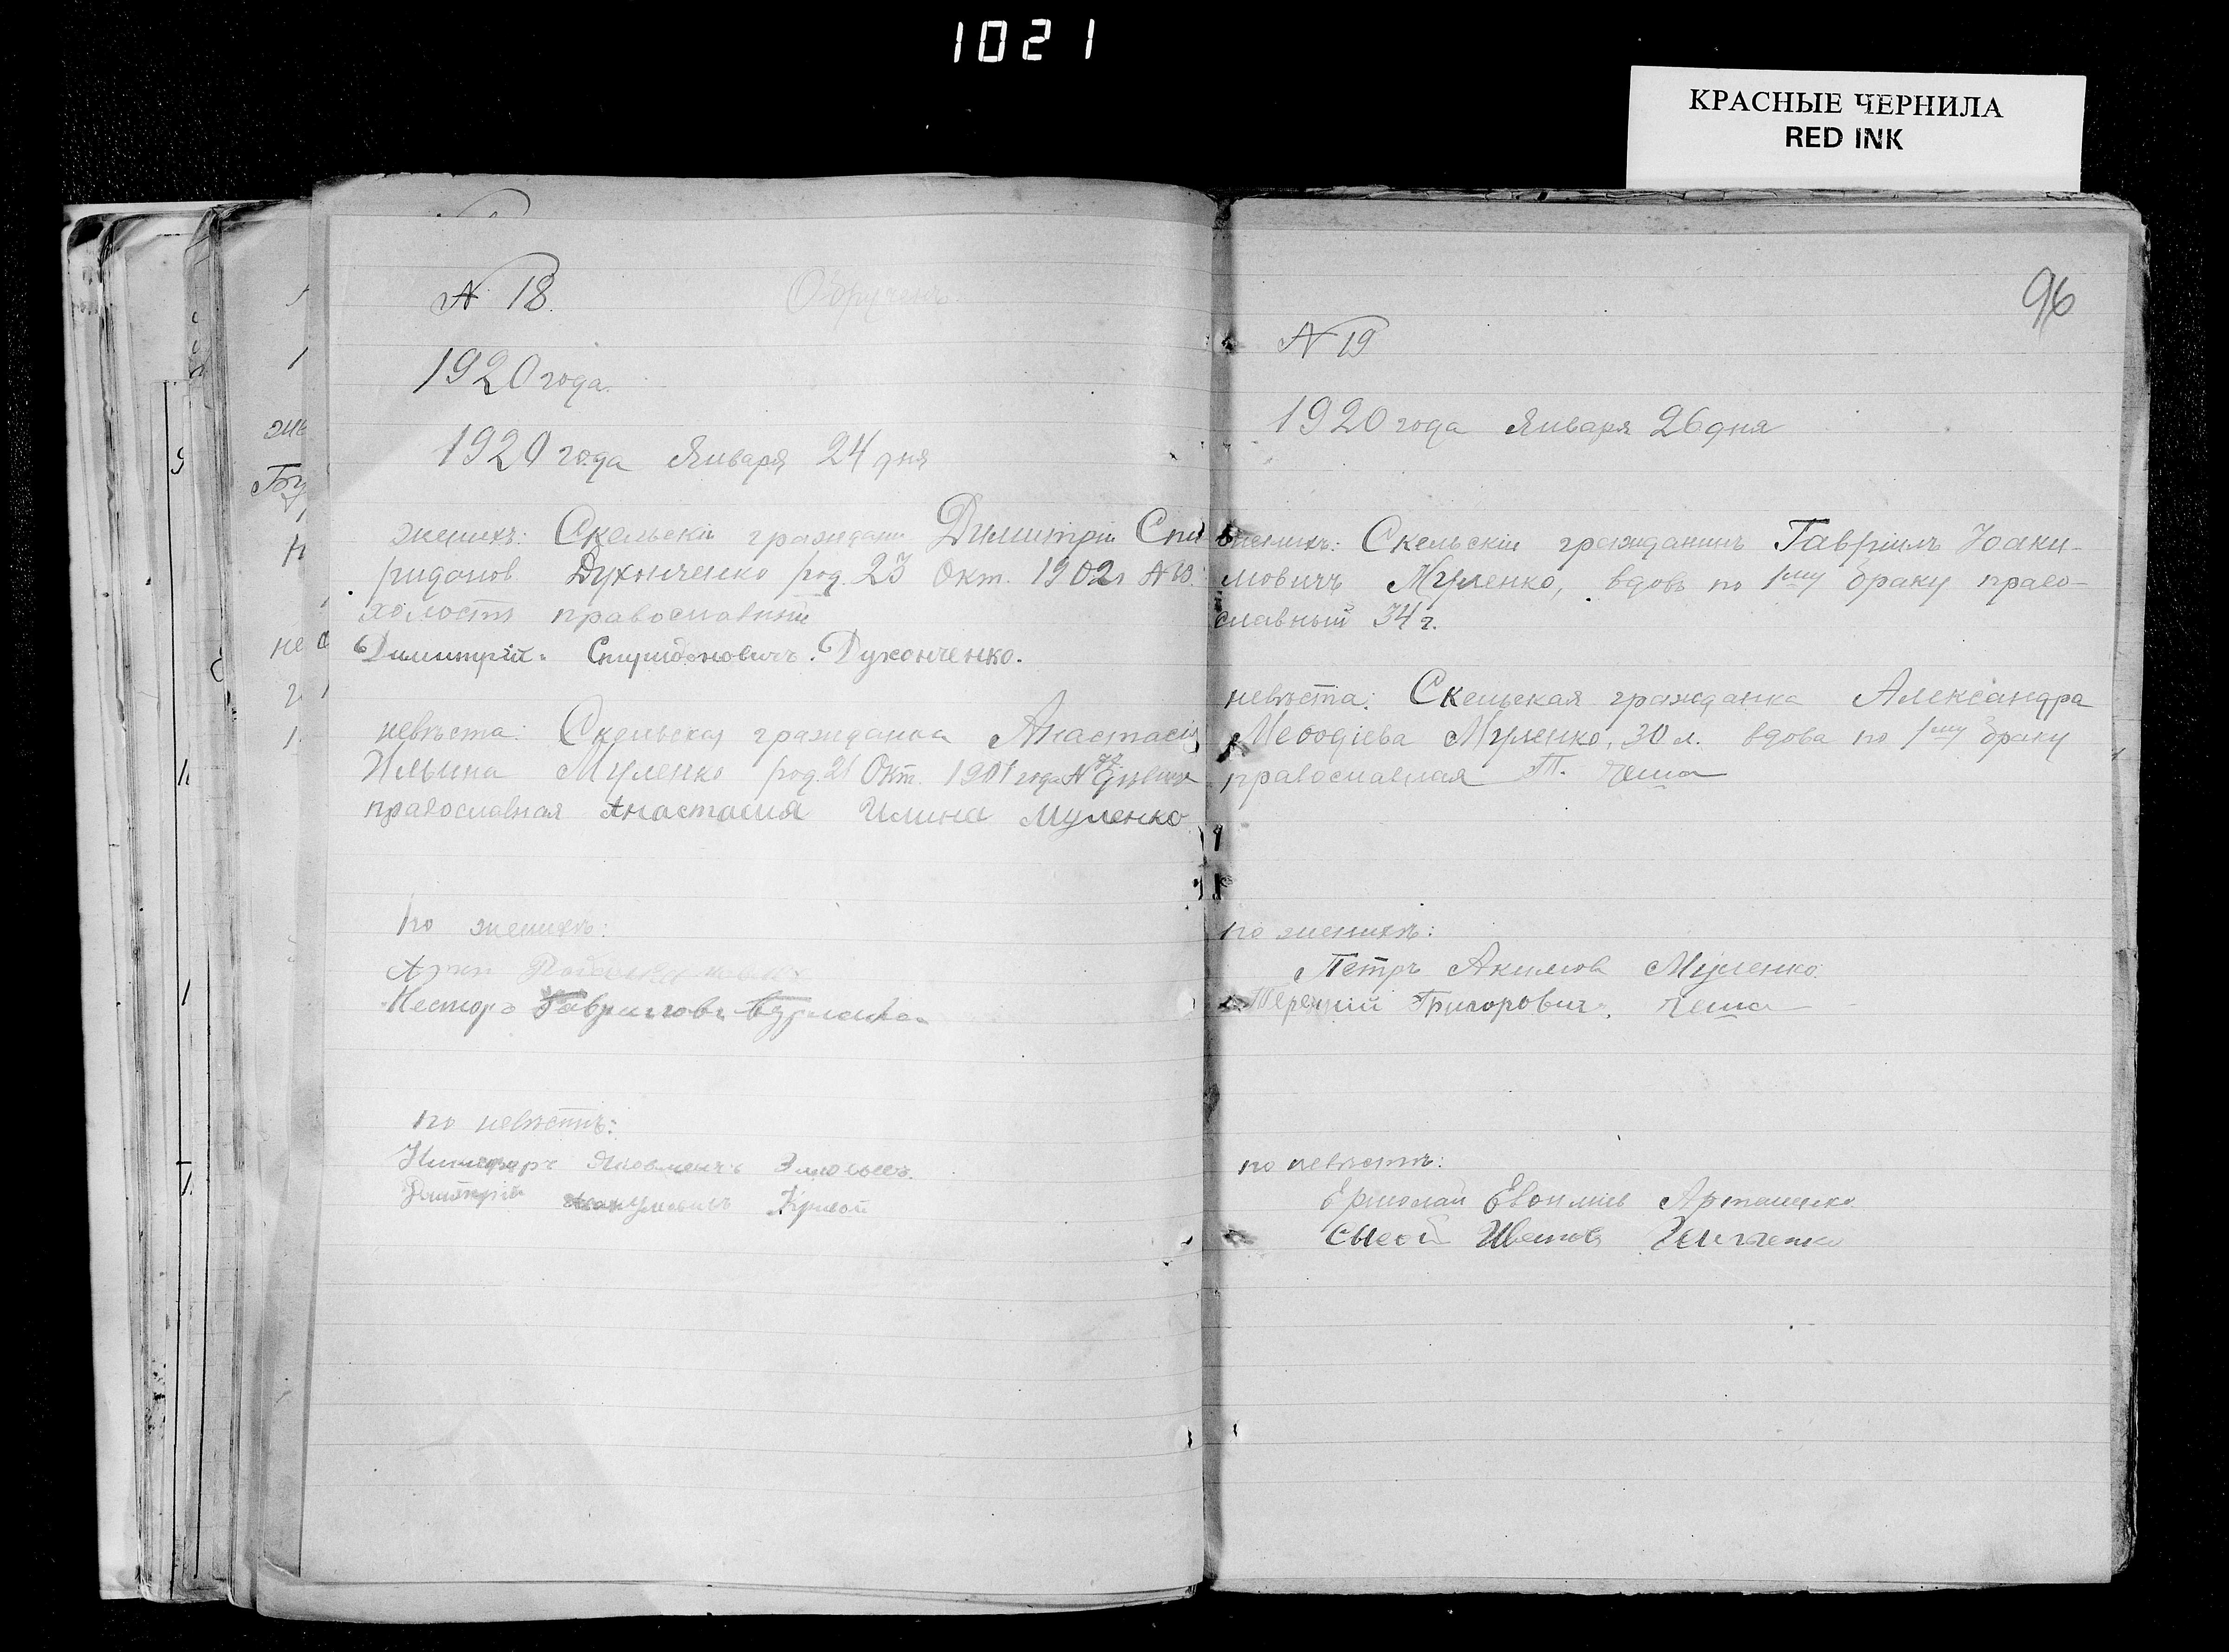 1021
КРАСНЫЕ ЧЕРНИЛА
RED INK
N 18.
1920 года.
1920 года Января 24 дня
женихъ: Скельскій граждан. Димитрій Спи
ридонов Духонченко род. 23 Окт. 1902 г N
холостъ православный
Димитрій Спиридоновичъ Духонченко.
невѣста: Скельская гражданка Анастасія
Ильина Муленко род. 21 Окт. 1901 года N дѣвица
православная Анастасия Илина Муленко
по женихѣ:
Несторъ Гавриловъ
по невѣстѣ:
Дмитрій Кривой
96
N 19
1920 года Января 26 дня
женихъ: Скельскій гражданинъ Гавріилъ Іоаки-
мовичъ Муленко, вдовъ по 1му браку право-
славный 34 г.
невѣста: Скельская гражданка Александра
Меѳодіева Муленко, 30 л. вдова по 1му браку
православная Т. Чеша
по женихѣ:
Петръ Акимова Муленко.
Терентій Григоровичъ Чеша
по невѣстѣ:
Ермолай Евѳиміевъ
Сысой Иванов